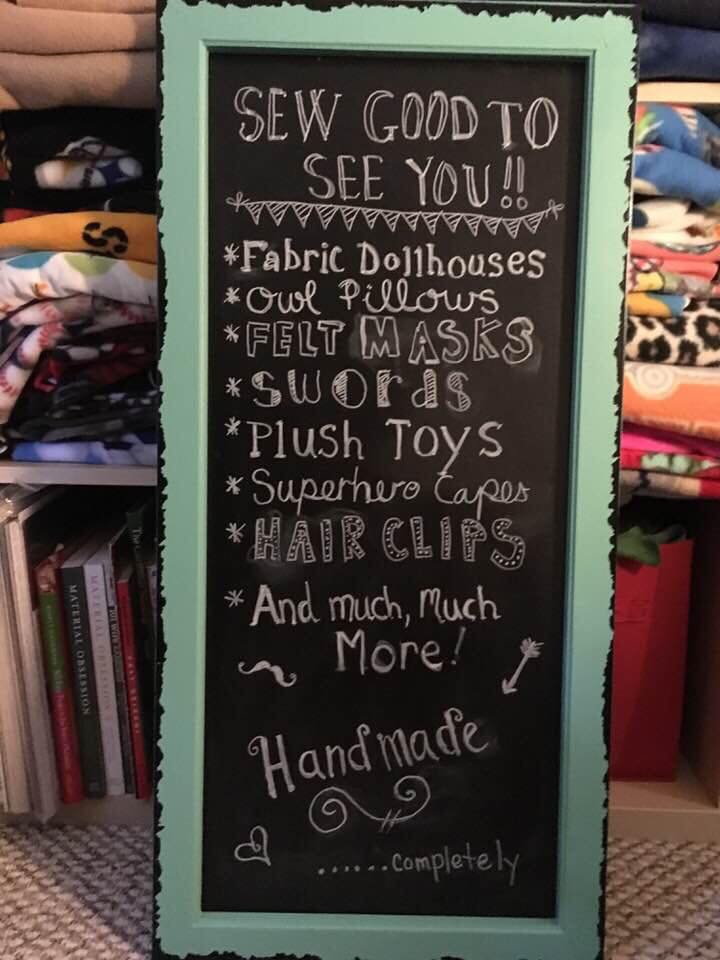 SEW GOOD TO
SEE YOU!!
*Fabric Dollhouses
*Owl Pillows
*FELT MASKS
*SWOrds
*Plush Toys
*Superhero Capes
*HAIR CLIPS
*And much, Much
More!
Handmade
......completely
S
MATERIAL OBSESSION
MATERIAL OBSESSION